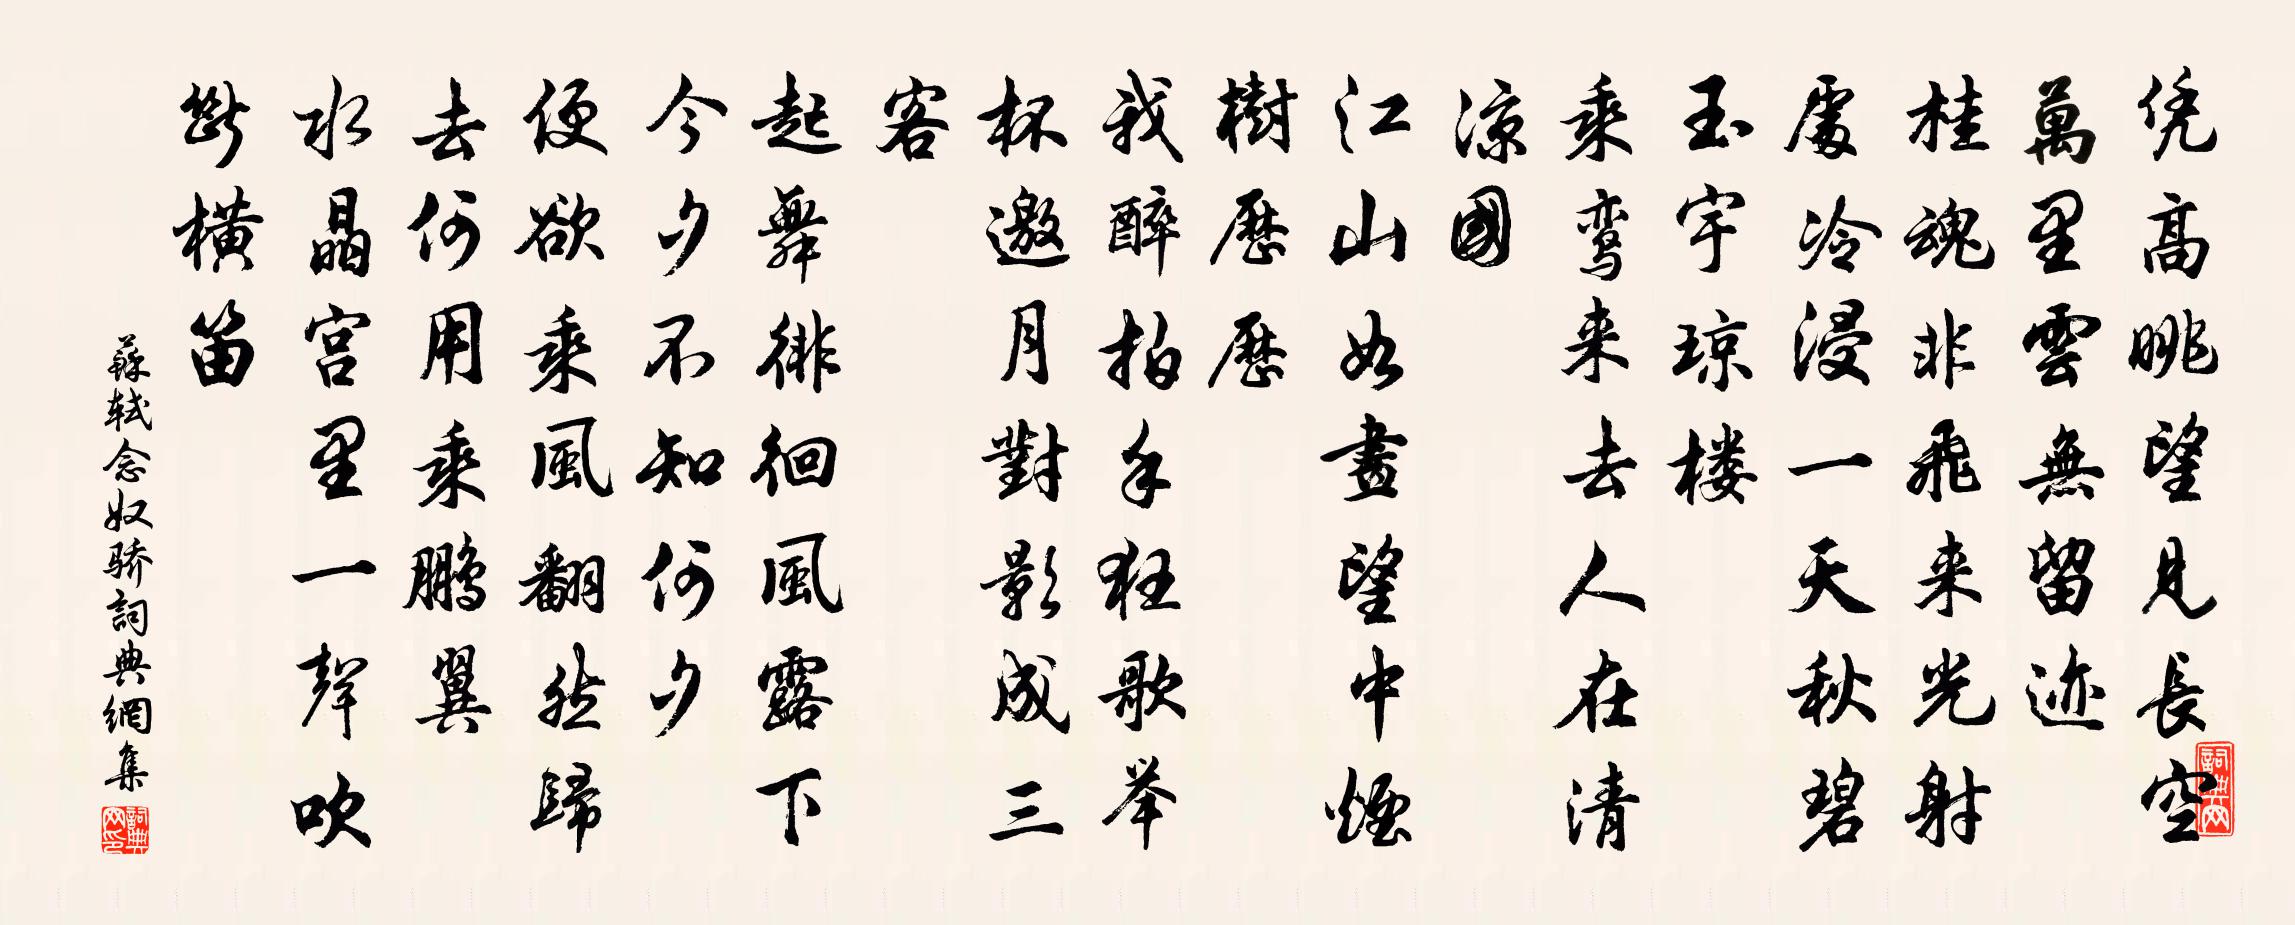 凭高眺望見長空
萬里雲無留迹
桂魂非飛来光射
處冷浸一天秋碧
玉宇琼楼
乘鸾来去人在清
涼國
江山如畫望中煙
樹歷歷
我醉拍手狂歌举
杯邀月對影成三
客
起舞徘徊風露下
今夕不知何夕
便欲乘風翻然歸
去何用乘鵬翼
水晶宫里一聲吹
斷横笛
蘇轼念奴骄詞典網集
詞典网
詞典网印